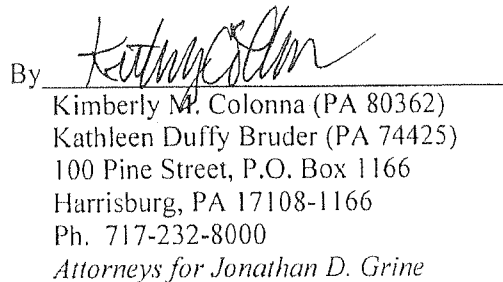 By
Kimberly M. Colonna (PA 80362)
Kathleen Duffy Bruder (PA 74425)
100 Pine Street, P.O. Box 1166
Harrisburg, PA 17108-1166
Ph. 717-232-8000
Attorneys for Jonathan D. Grine